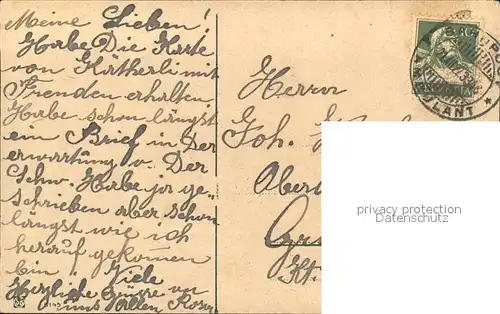 Meine Lieben!
Habe Die Karte
von Kätherli mit
Freuden erhalten
Habe schon längst
ein Brief in Der
erwartung v. Der
Schw. Habe ja ge-
schrieben aber schon
längst wie ich
herauf gekomen
bin. Viele
Herzliche Grüsse von
uns Allen Rosa
Herrn
Joh.
Ober
Gr
Kt.
LANT
privacy protection
Datenschutz